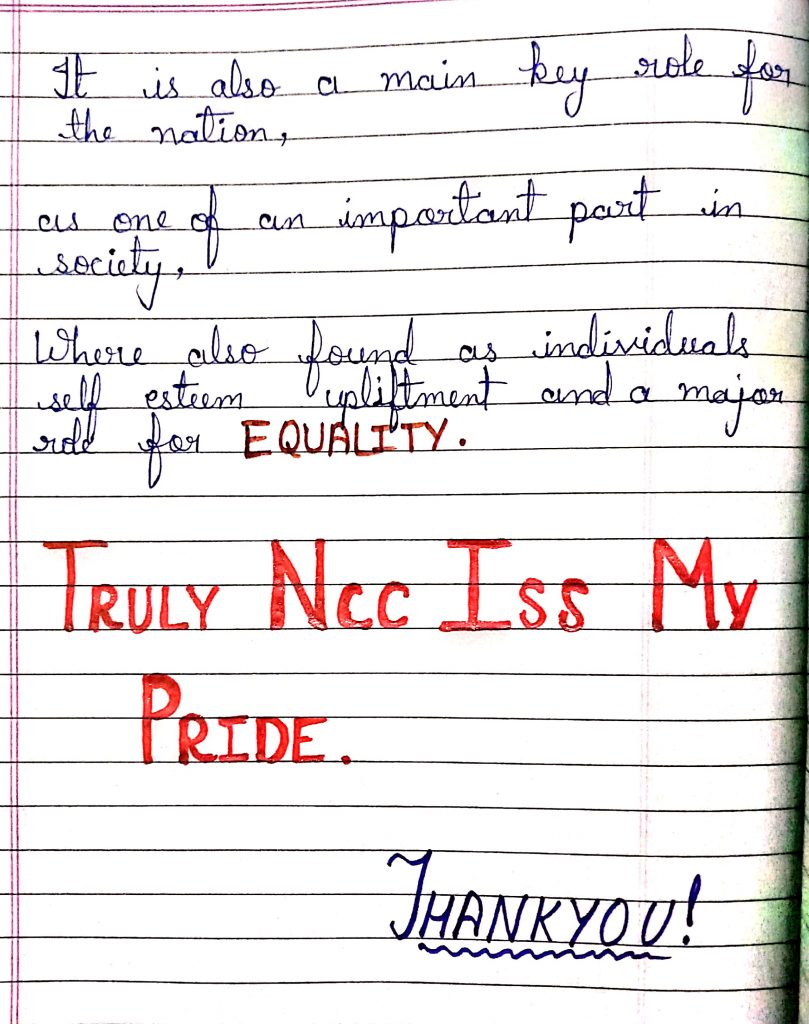 It is also a main key role for
the nation,
as one of an important part in
society,
Where also found as individuals
self esteem upliftment and a major
role for EQUALITY.
TRULY NCC ISS MY
PRIDE.
THANKYOU!